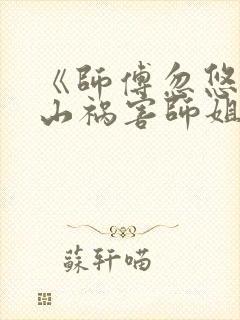 《師傅忽悠
山祸害師姐
蘇轩喵